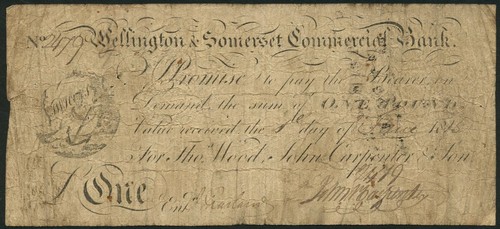 No. 2479 Wellington & Somerset Commercial Bank.
I Promise to pay the Bearer on
Demand the sum of ONE POUND
Value received the day of 18
For Thos. Wood, John Carpenter & Son
2479
£ One
Entd. John Carpenter